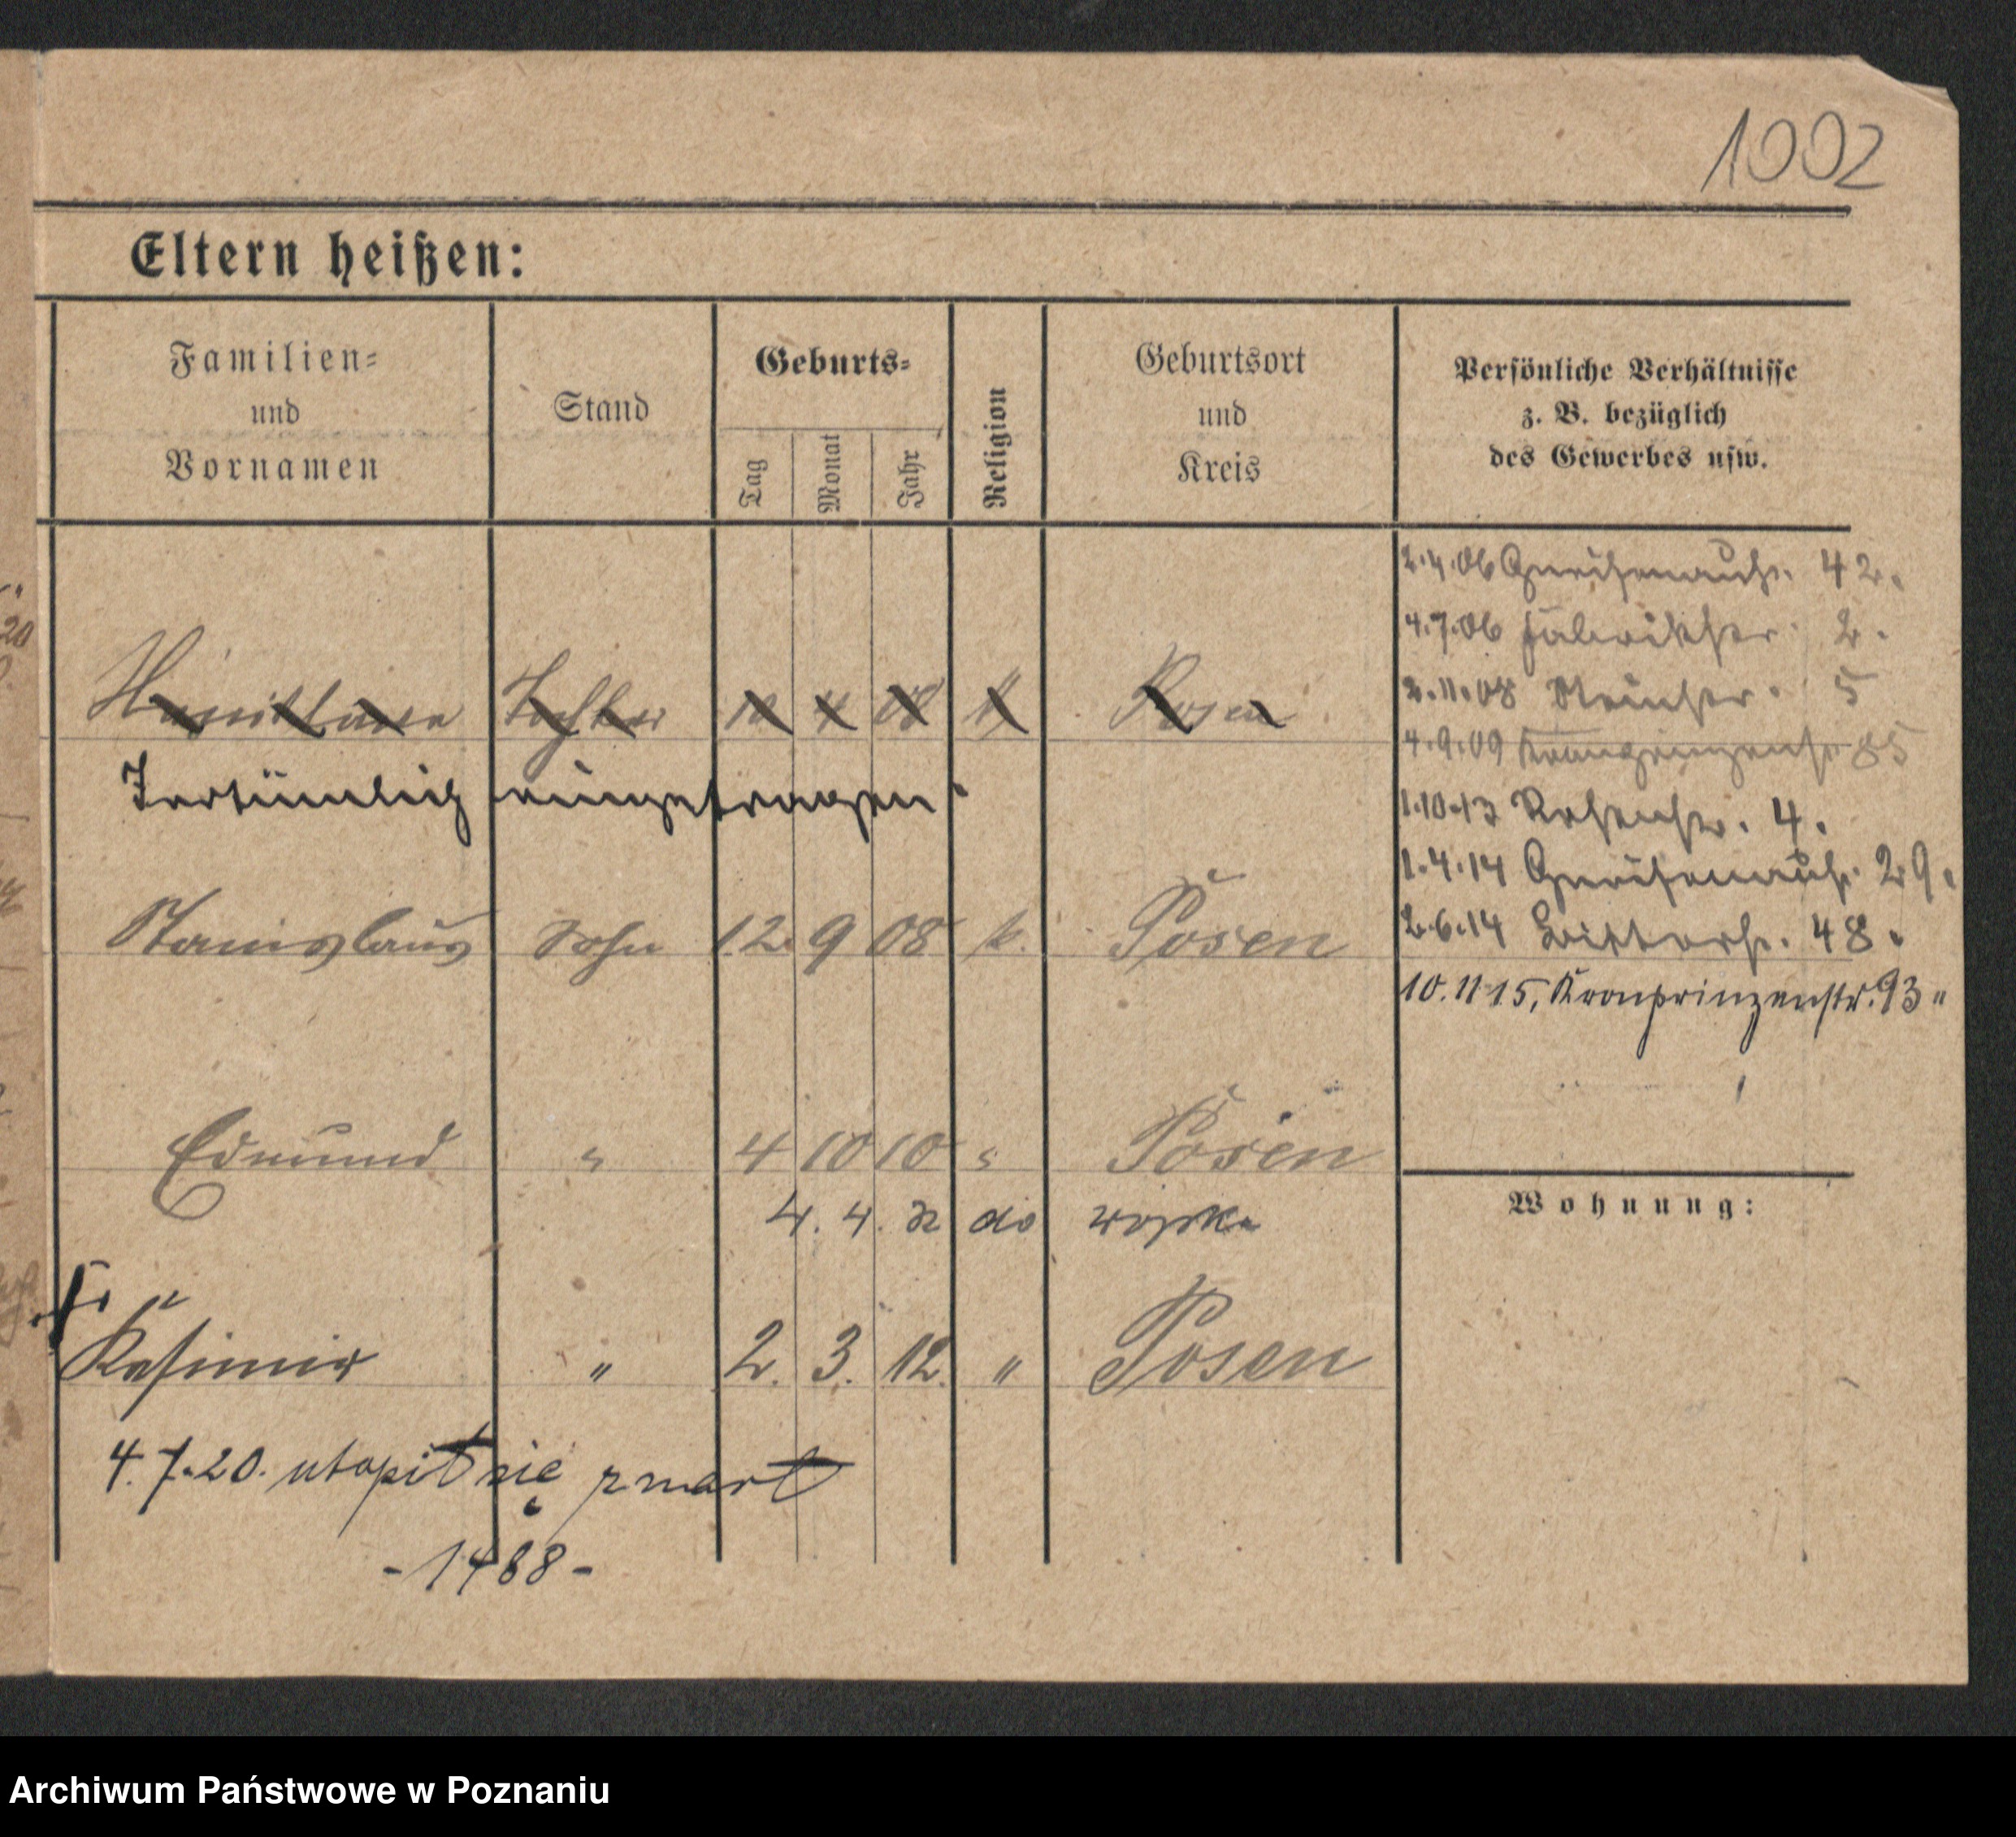 1002
Eltern heißen:
Familien-
und
Vornamen
Stand
Geburts-
Tag
Monat
Jahr
Religion
Geburtsort
und
Kreis
Persönliche Verhältnisse
z. B. bezüglich
des Gewerbes usw.
2.4.06 Gneisenaustr. 42.
4.7.06 Fabrikstr. 2.
2.11.08 5
4.9.09 Kronprinzenstr 85
1.10.13 Rosenstr. 4.
1.4.14 Gneisenaustr. 29.
2.6.14 48.
10.11.15, Kronprinzenstr. 93"
Tochter 10 4 08 k Posen
Irrtümlich eingetragen.
Stanislaus Sohn 12. 9 08 k. Posen
Edmund " 4 10 10 " Posen
4. 4. 32 do wojska
Wohnung:
Kasimir " 2. 3. 12. " Posen
4.7.20. utopił się zmarł
-1488-
Archiwum Państwowe w Poznaniu